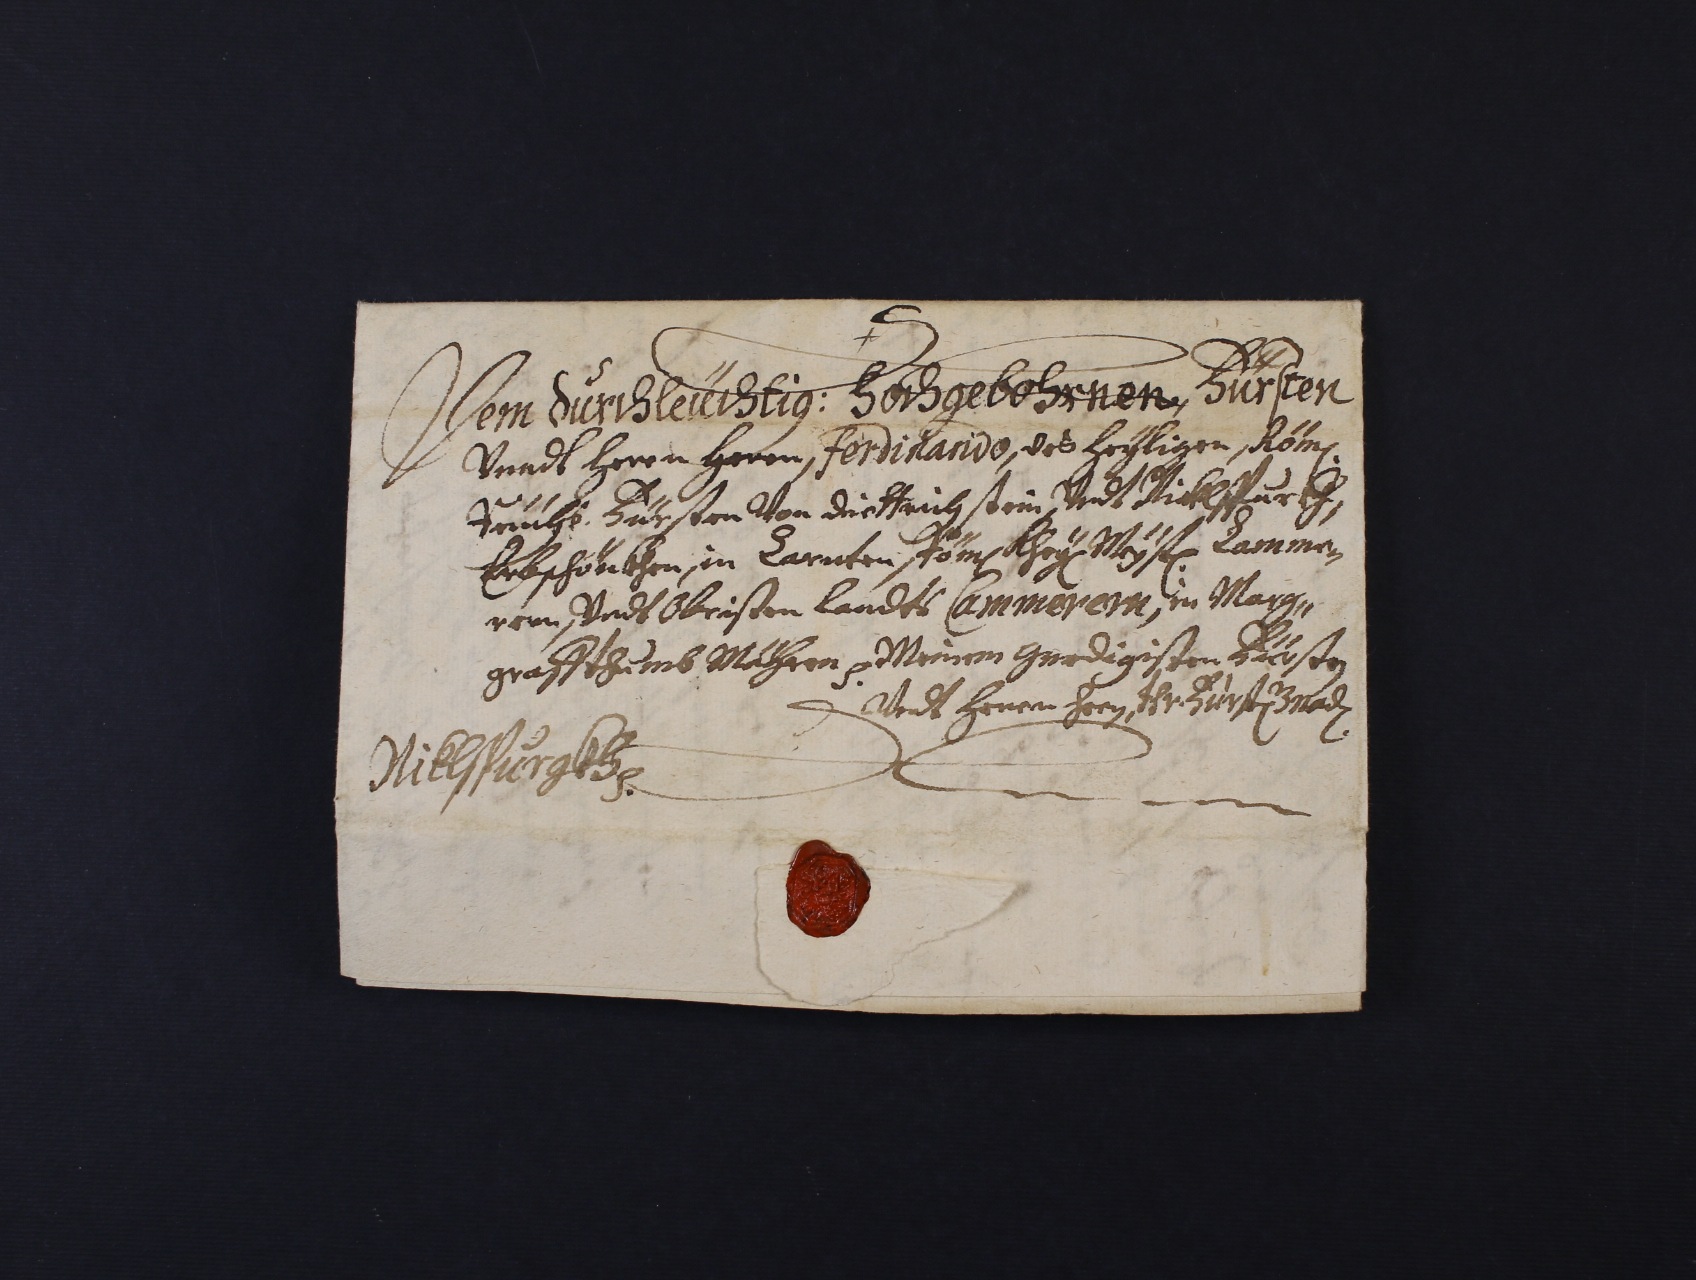 Dem Durchleüchtig: Hochgebohrnen, Fürsten
Vnndt Herrn Herrn, Ferdinando, des Heyligen, Röm:
Reichs. Fürsten Von Diettrichstein, Vndt Niclspurg,
Erbschönkhen, in Carnten, Röm: Khay: Mayst: Camme„
rern, Vndt Obristen Landts Cammerern, in Marg„
graffthumb Mähren, Meinem Gnedigisten Fürsten
Vndt Herrn Herrn, Ihr Fürstl: Gnad:
Niklspurgkh